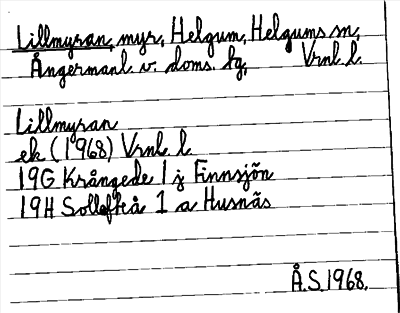 Lillmyran, myr, Helgum, Helgums sn,
Ångermanl. v. doms. fg, Vrnl. l.
Lillmyran
ek (1968) Vrnl. l.
19G Krångede 1 j Finnsjön
19H Sollefteå 1 a Husnäs
Å.S. 1968.